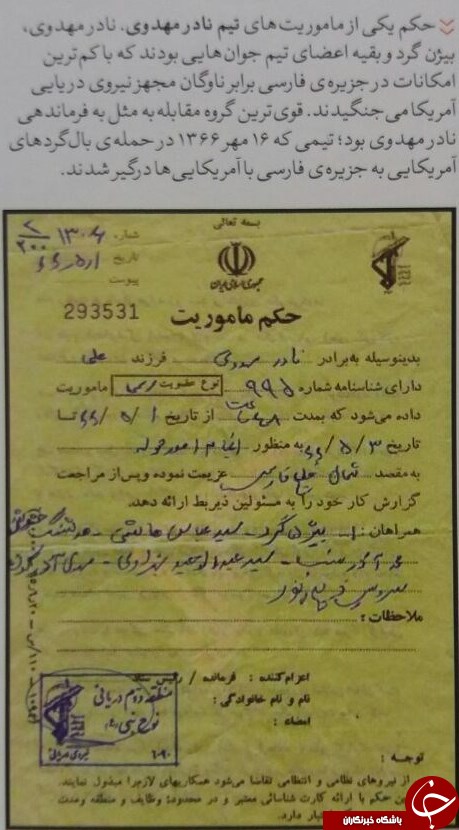 حکم یکی از ماموریت‌های تیم نادر مهدوی. نادر مهدوی،
بیژن گرد و بقیه اعضای تیم جوان‌هایی بودند که با کم‌ترین
امکانات در جزیره‌ی فارسی برابر ناوگان مجهز نیروی دریایی
آمریکا می‌جنگیدند. قوی‌ترین گروه مقابله به مثل به فرماندهی
نادر مهدوی بود؛ تیمی که ۱۶ مهر ۱۳۶۶ در حمله‌ی بال‌گردهای
آمریکایی به جزیره‌ی فارسی با آمریکایی‌ها درگیر شدند.
بسمه تعالی
شماره
تاریخ
پیوست
جمهوری اسلامی ایران
293531
حکم ماموریت
بدینوسیله به برادر نادر مهدوی فرزند علی
دارای شناسنامه شماره ۹۹۵ نوع عضویت رسمی ماموریت
داده می‌شود که بمدت ساعت از تاریخ ۱/۵/۶۶ تا
تاریخ ۳/۵/۶۶ به منظور انجام امور محوله
به مقصد شمال خلیج فارس عزیمت نموده و پس از مراجعت
گزارش کار خود را به مسئولین ذیربط ارائه دهد.
همراهان: ۱- بیژن گرد -
ملاحظات:
اعزام کننده: فرمانده / رئیس ستاد
نام و نام خانوادگی:
امضاء:
منطقه دوم دریائی
نوح نبی
نیروی دریائی
۶۰۹۰
توجه:
از نیروهای نظامی و انتظامی تقاضا می‌شود همکاریهای لازم را مبذول نمایند.
این حکم با ارائه کارت شناسائی معتبر و در محدوده وظایف و منطقه و مدت
اعتبار دارد.
باشگاه خبرنگاران